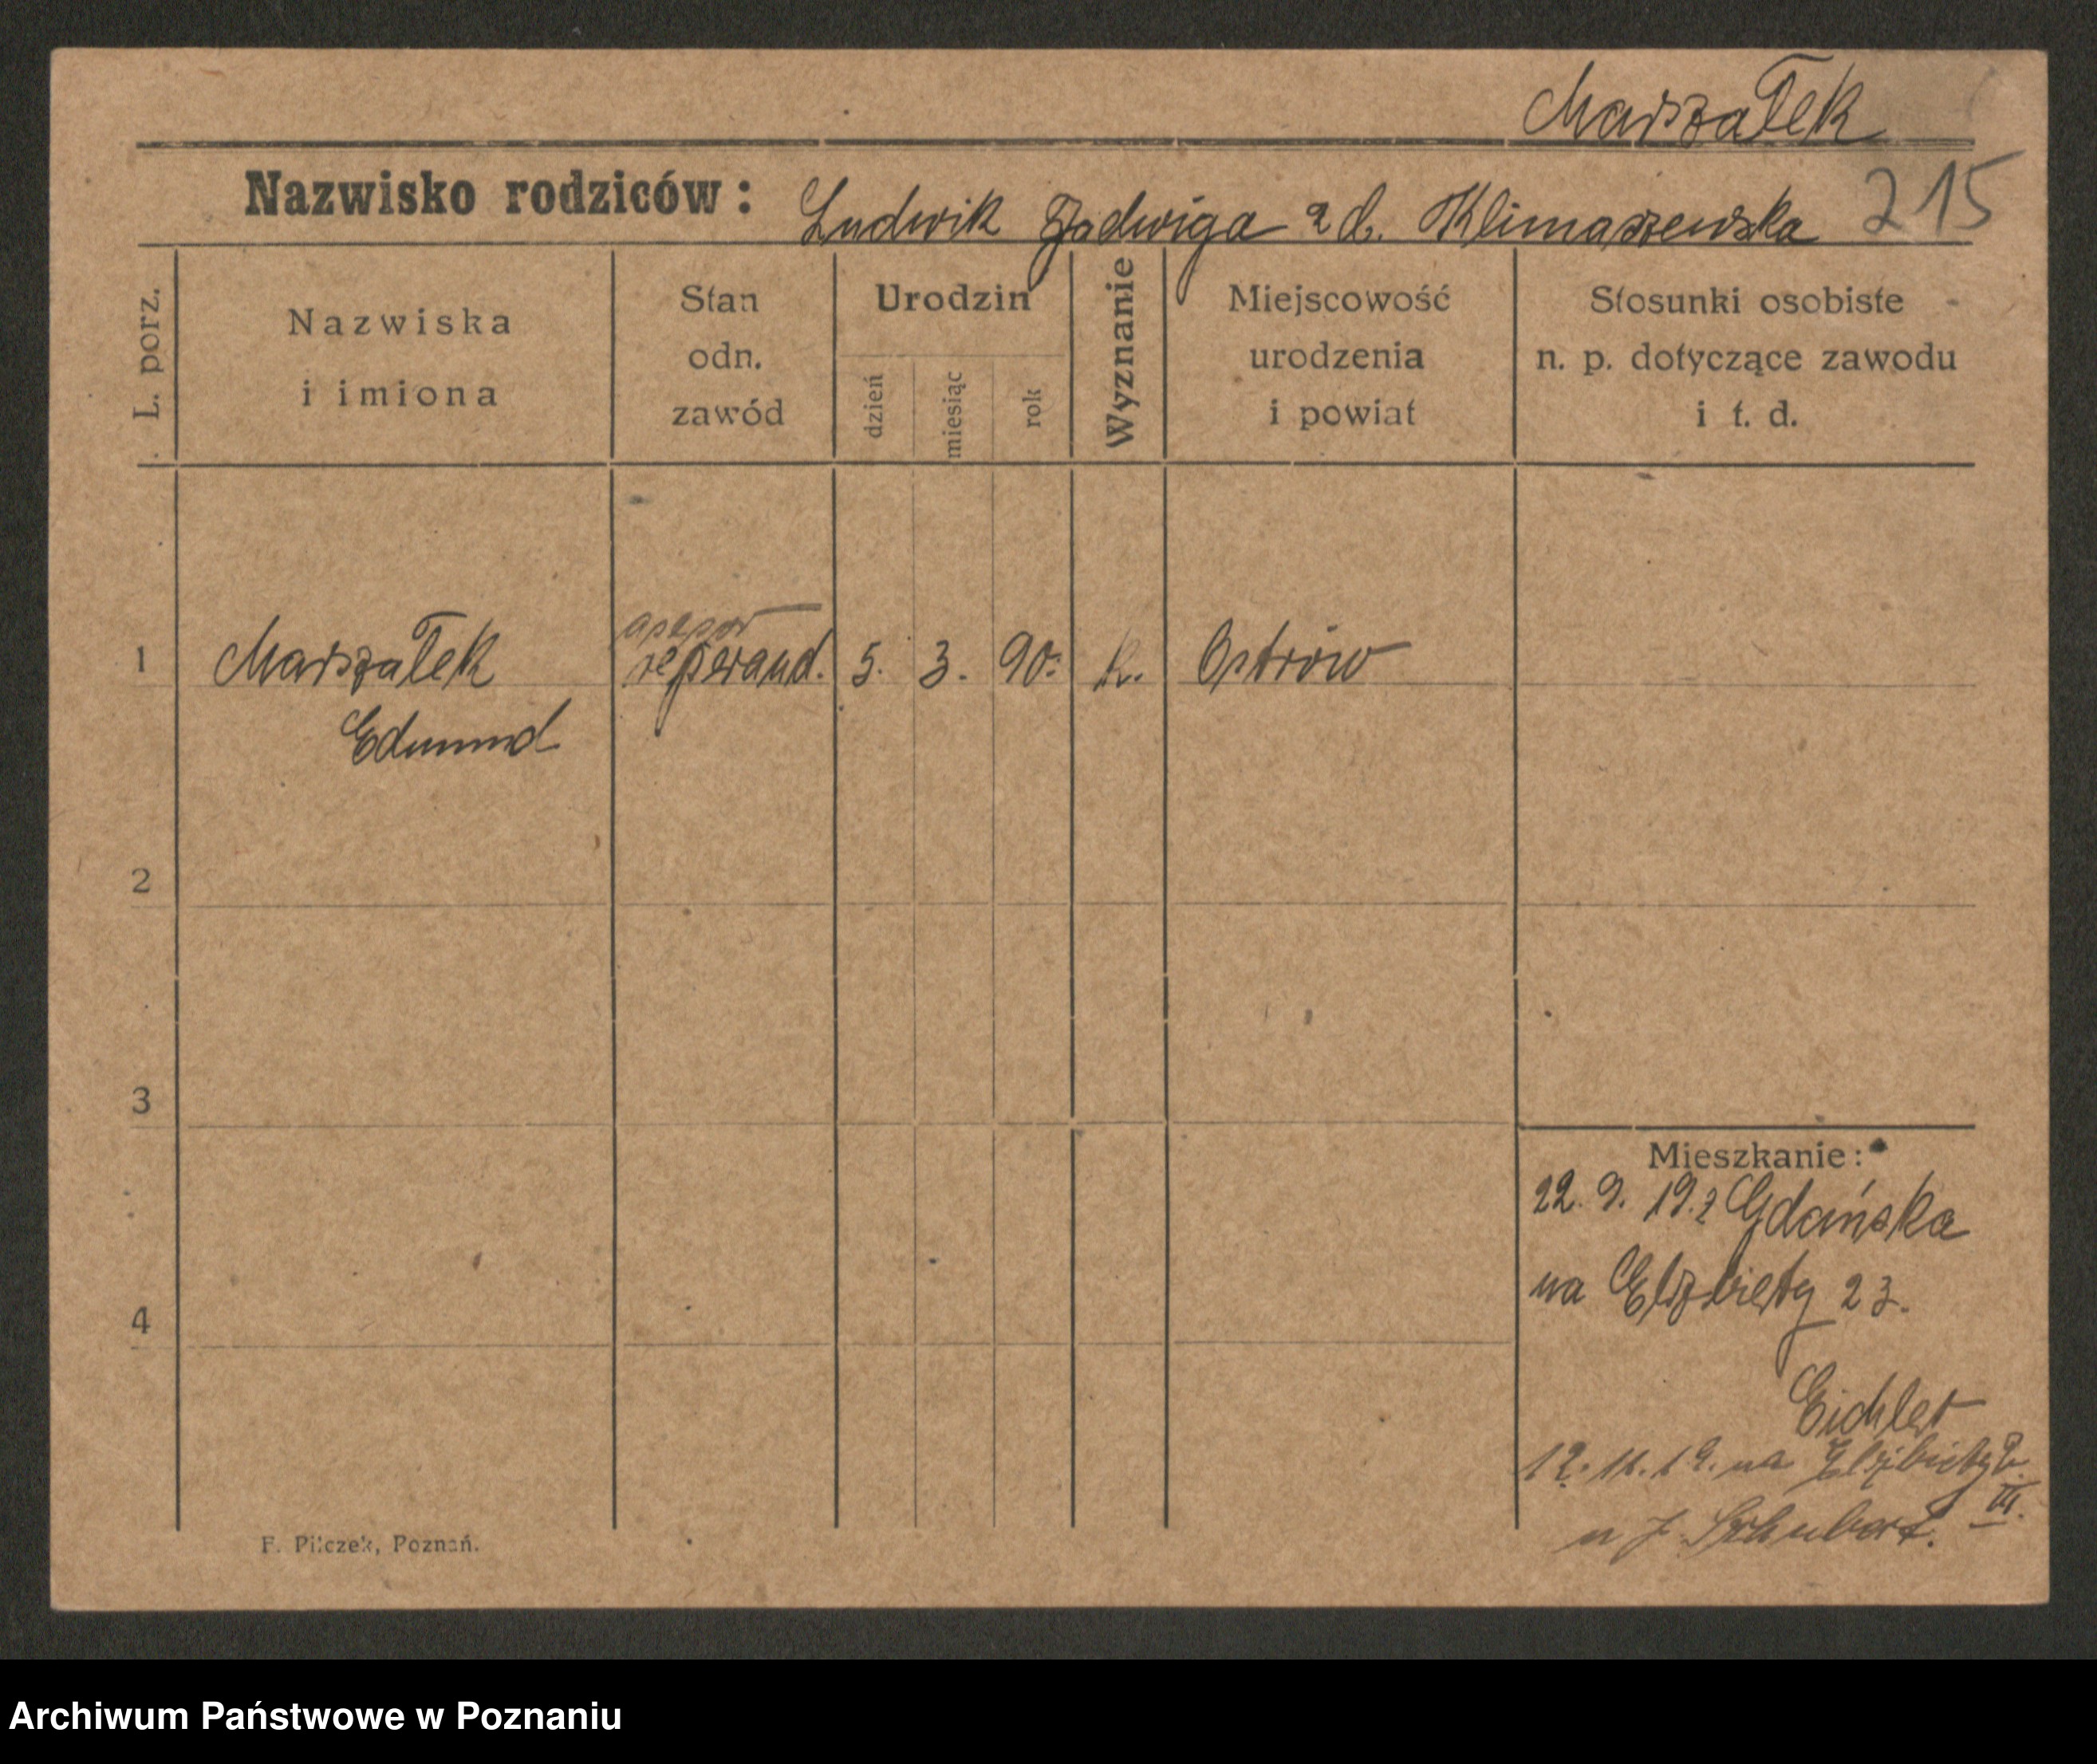 Marszałek
Nazwisko rodziców: Ludwik Jadwiga z d. Klimaszewska 215
L. porz.
Nazwiska i imiona
Stan odn. zawód
Urodzin
dzień
miesiąc
rok
Wyznanie
Miejscowość urodzenia i powiat
Stosunki osobiste n. p. dotyczące zawodu i t. d.
asesor
1 Marszałek referand. 5. 3. 90. k. Ostrów
Edmund
2
3
4
Mieszkanie:
22. 9. 19. z Gdańska
na Elżbiety 23.
Eichler
12. 11. 19. na Elżbiety 2
III.
u J. Schubert.
F. Pilczek, Poznań.
Archiwum Państwowe w Poznaniu